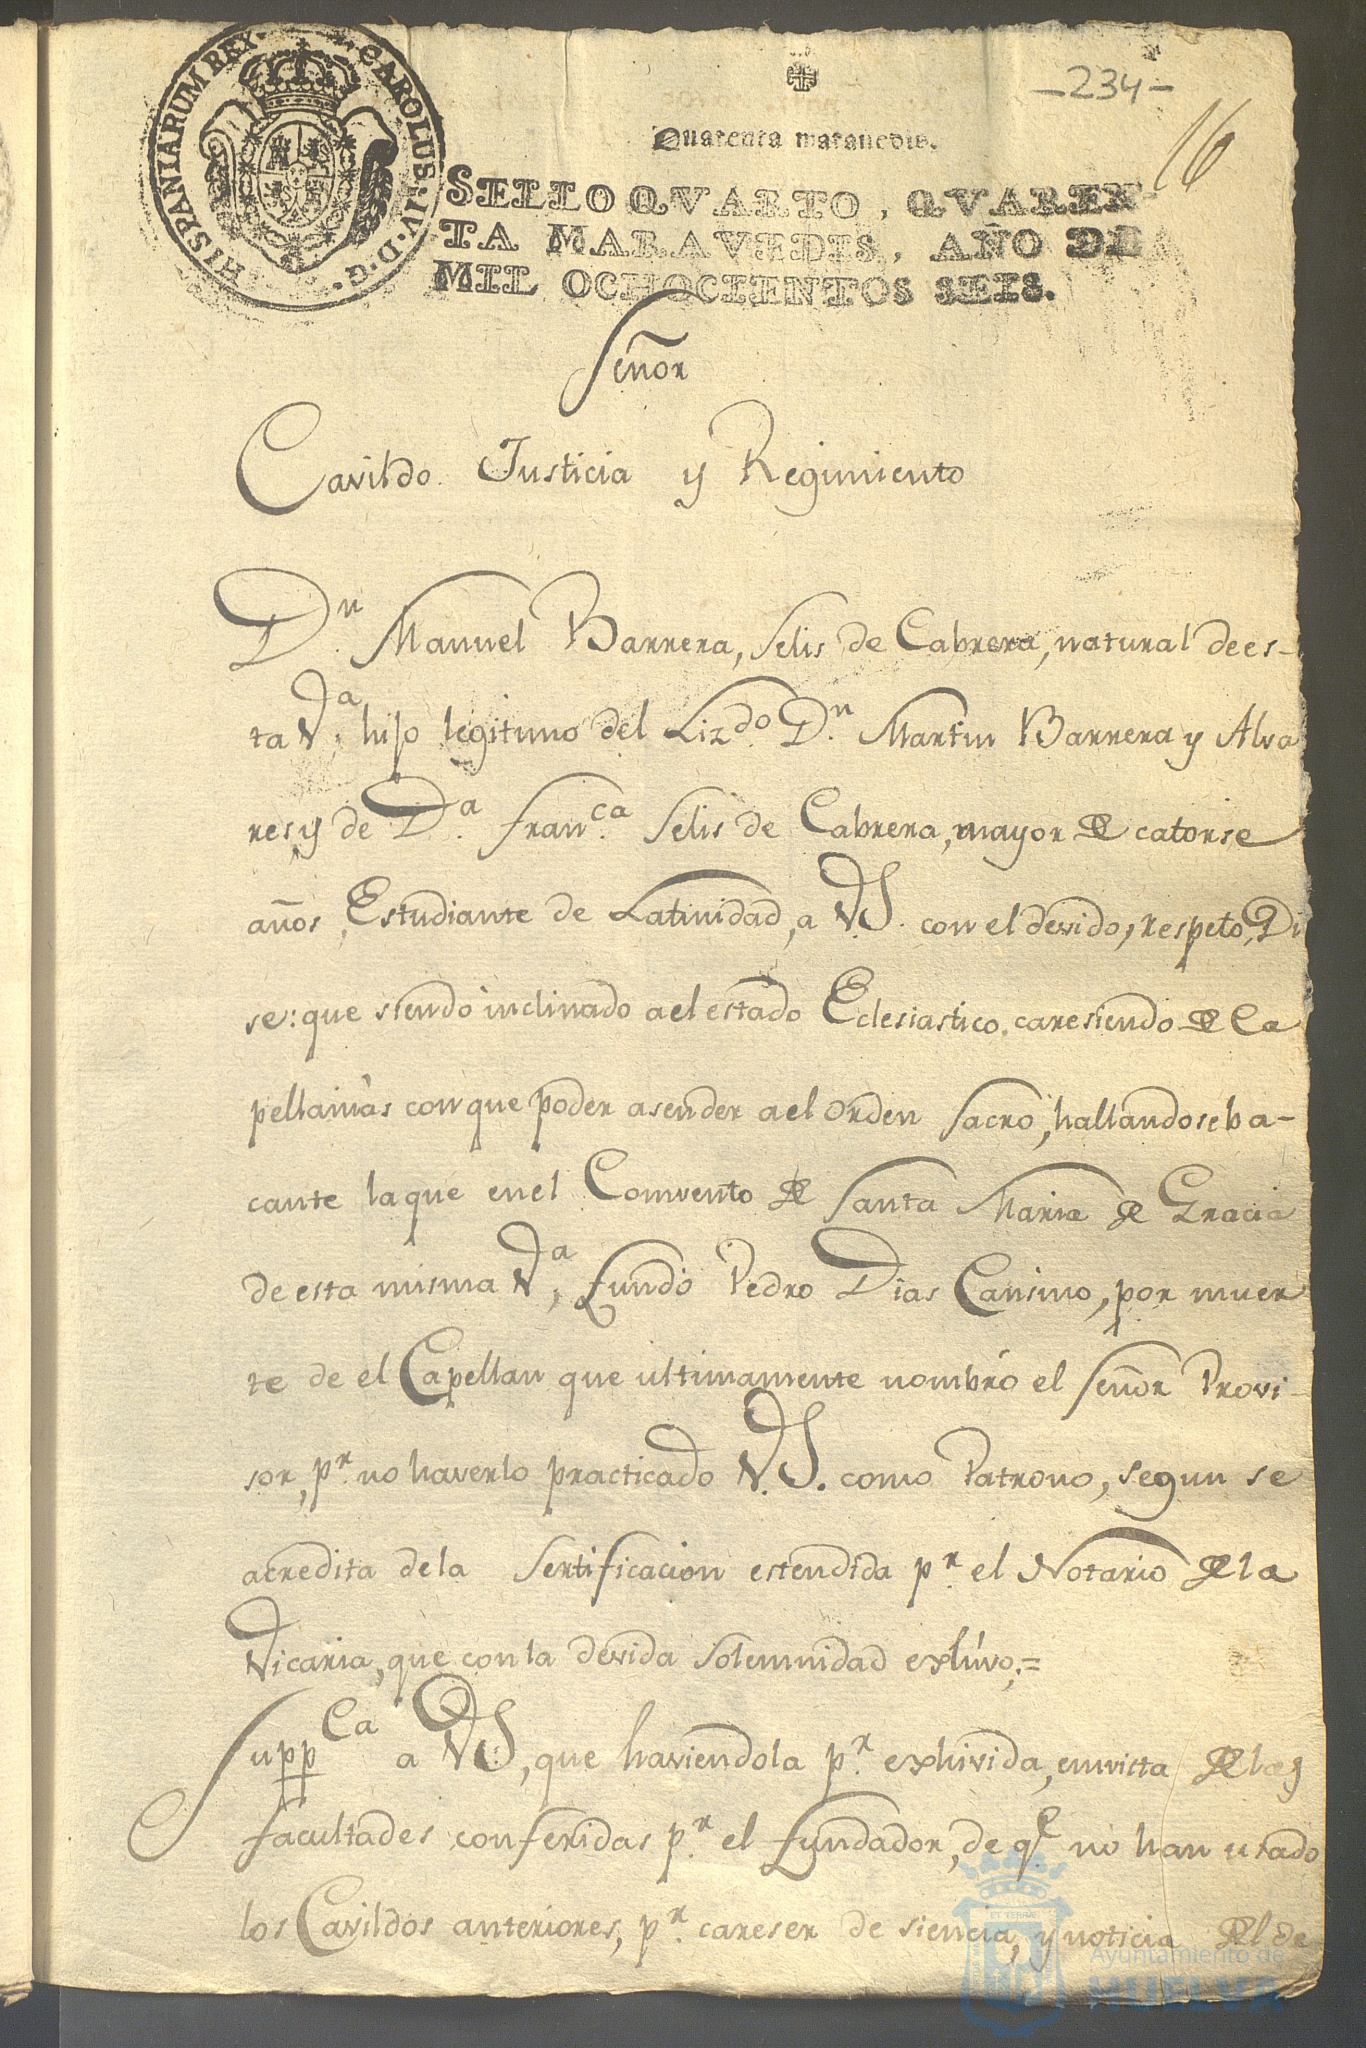 -234-
16
HISPANIARUM REX · CAROLUS · IV · D · G ·
Quarenta marauedis.
SELLO QVARTO, QVAREN-
TA MARAVEDIS, AÑO DE
MIL OCHOCIENTOS SEIS.
Señor
Cavildo Justicia y Regimiento
Dn. Manuel Barrera, Selis de Cabrera, natural de es-
ta Va. hijo legitimo del Lizdo. Dn. Martin Barrera y Alva
res, y de Da. Franca. Selis de Cabrera, mayor de catorse
años, Estudiante de Latinidad, a V.S. con el devido, respeto, Di
se: que siendo inclinado a el estado Eclesiastico, caresiendo de Ca
pellanias con que poder asender a el Orden Sacro, hallandose ba-
cante la que en el Comvento de Santa Maria de Gracia
de esta misma Va, fundó Pedro Dias Cansino, por muer
te de el Capellan que ultimamente nombró el Señor Provi-
sor, pr. no haverlo practicado V.S. como Patrono, segun se
acredita de la Sertificacion estendida pr. el Notario de la
Vicaria, que con la devida solemnidad exhívo,=
Suppca a VS, que haviendola pr. exhivida, en vista de las
facultades conferidas pr. el fundador, de qe. no han usado
los Cavildos anteriores, pr. careser de siencia, y noticia del de
ET TERRÆ
Ayuntamiento de
HUELVA